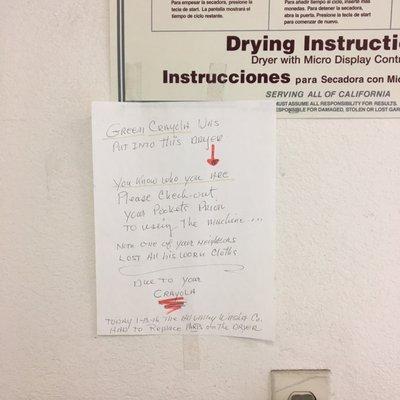 Para empezar la secadora, presione la
tecla de start. La pantalla mostrará el
tiempo de ciclo restante.
Para añadir tiempo al ciclo, inserte más
monedas. Para detener la secadora,
abra la puerta. Presione la tecla de start
para comenzar de nuevo.
Drying Instructi
Dryer with Micro Display Contr
Instrucciones para Secadora con Mic
SERVING ALL OF CALIFORNIA
MUST ASSUME ALL RESPONSIBILITY FOR RESULTS.
ESPONSIBLE FOR DAMAGED, STOLEN OR LOST GAR
GREEN CRAYOLA WAS
PUT INTO THIS DRYER
YOU KNOW WHO YOU ARE
Please Check-out
YOUR POCKETS PRIOR
TO USING THE MACHINE....
NOTE ONE OF YOUR NEIGHBORS
LOST All his WORK Cloths
DUE TO YOUR
CRAYOLA
TODAY 1-13-16 THE All Valley WASHER Co.
HAD TO REPLACE PARTS ON THE DRYER